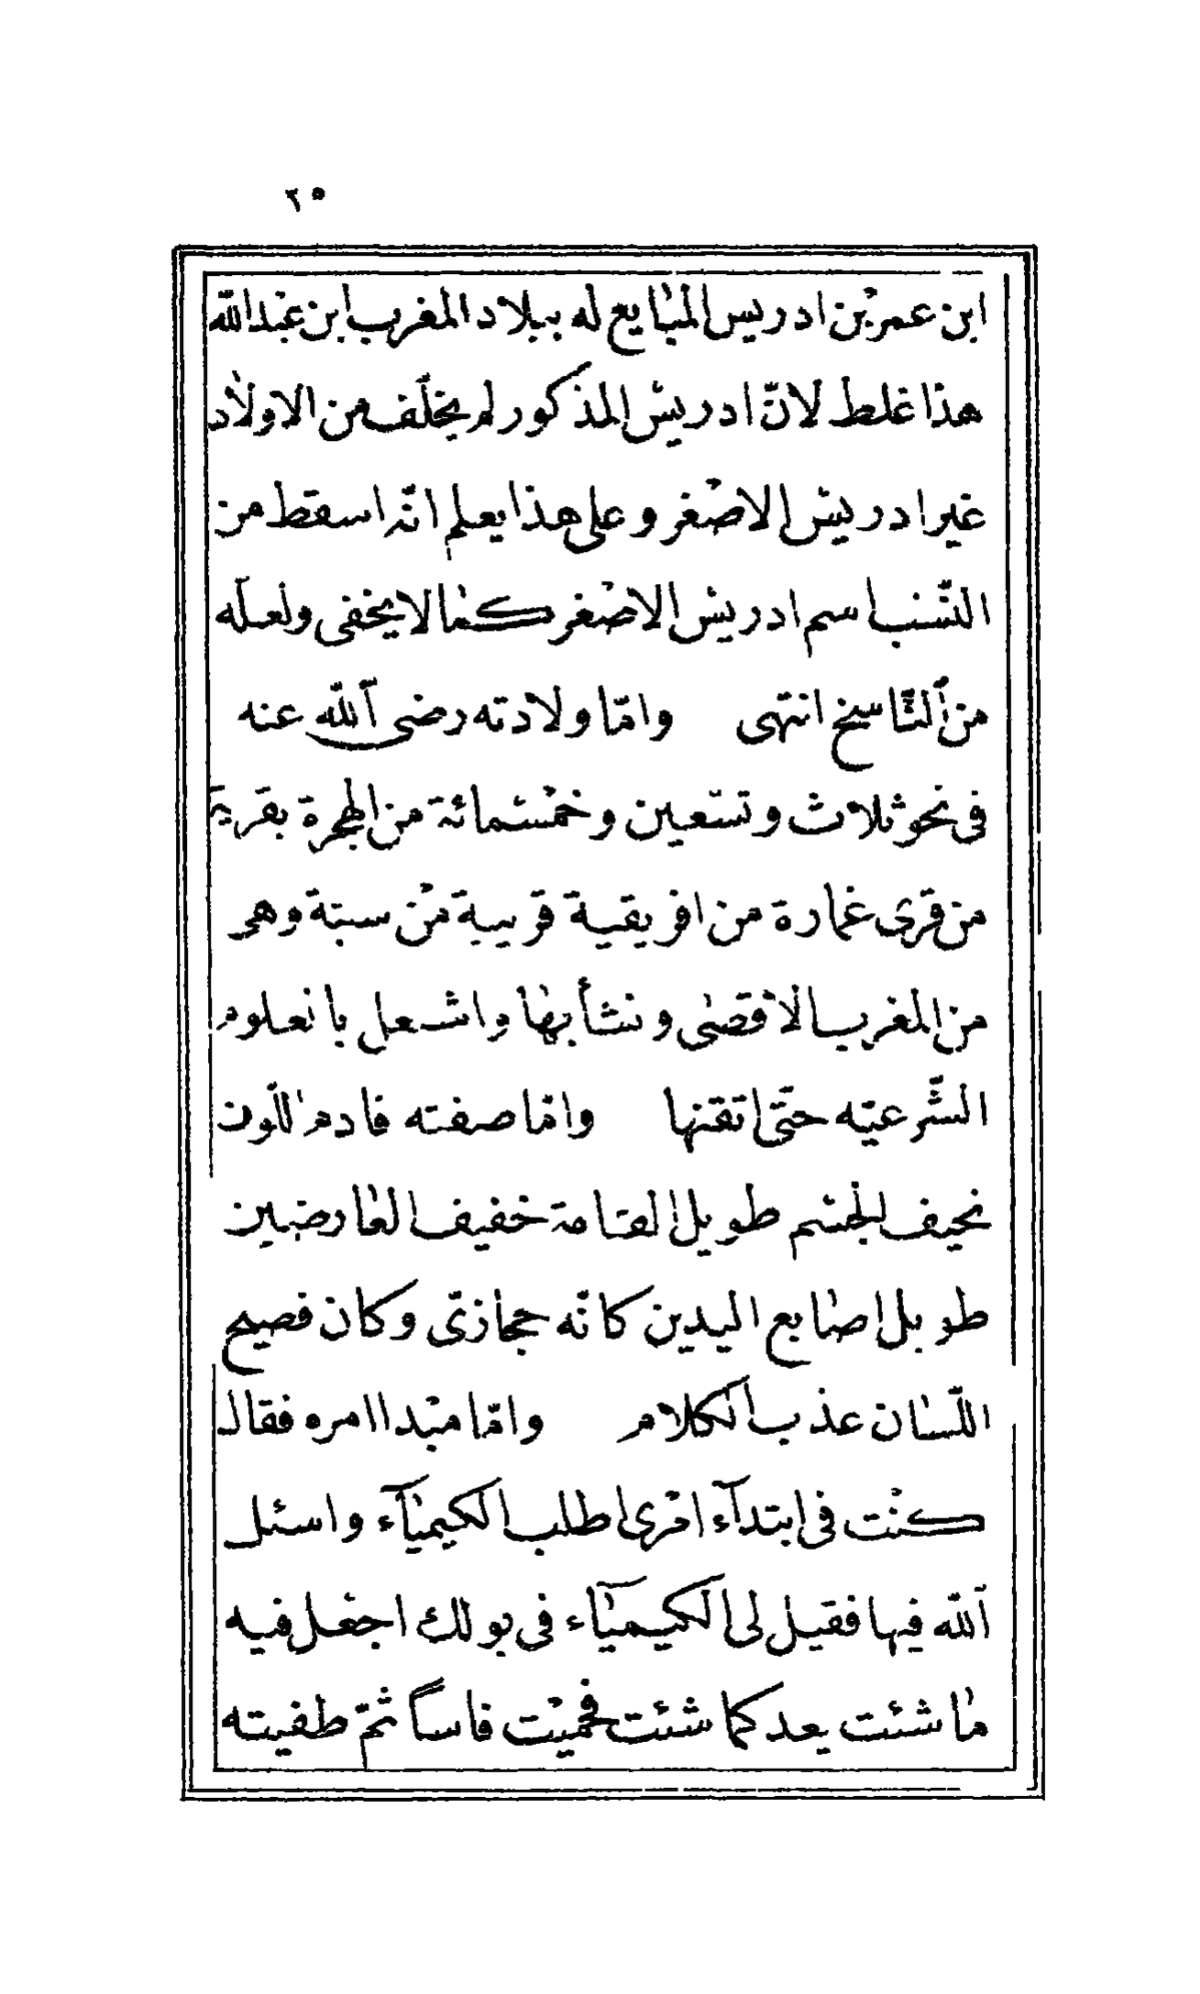 ٢٥
ابن عمر بن ادريس المبايع له ببلاد المغرب ابن عبد الله
هذا غلط لانّ ادريس المذكور لم يخلّف من الاولاد
غير ادريس الاصغر وعلى هذا يعلم انّه اسقط من
النّسب اسم ادريس الاصغر كما لا يخفى ولعلّه
من النّاسخ انتهى وامّا ولادته رضى الله عنه
فى نحو ثلاث وتسعين وخمسمائة من الهجرة بقرية
من قرى غمارة من افريقية قريبة من سبتة وهى
من المغرب الاقصى ونشأ بها واشتعل بالعلوم
الشّرعيّه حتّى اتقنها وامّا صفته فادم اللّون
نحيف الجسم طويل القامة خفيف العارضين
طويل اصابع اليدين كانّه حجازىّ وكان فصيح
اللّسان عذب الكلام وامّا مبدا امره فقال
كنت فى ابتدآء امرى اطلب الكيميآء واسئل
الله فيها فقيل لى الكيميآء فى بولك اجعل فيه
ما شئت يعد كما شئت فحميت فاساً ثمّ طفيته